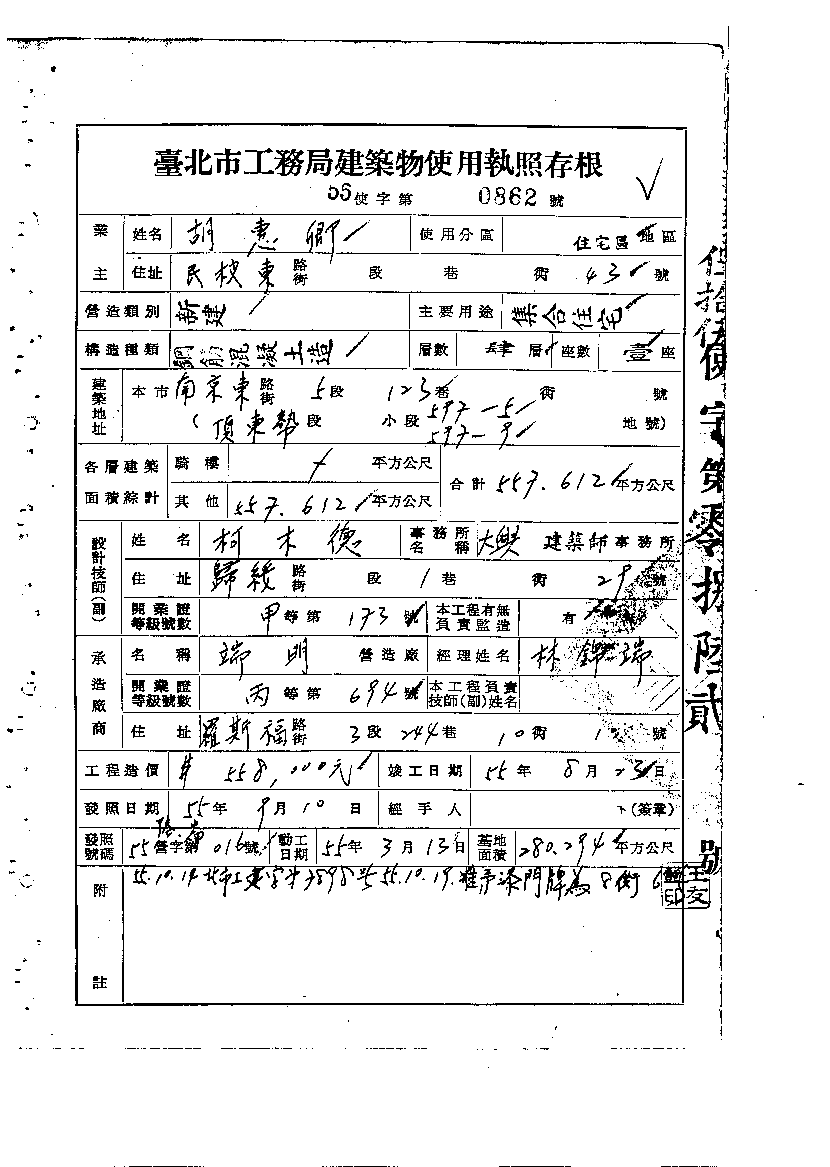 臺北市工務局建築物使用執照存根
使字第 0862 號
業主 姓名 胡惠卿 使用分區 住宅區 地區
住址 民校東 路街 段 巷 衖 43 號
營造類別 新建 主要用途 集合住宅
構造種類 鋼筋混凝土造 層數 肆 層 座數 壹 座
建築地址 本市 南京東 路街 5 段 123 巷 衖 號
(頂東勢 段 小段 597-5 597-9 地號)
各層建築面積綜計 騎樓 平方公尺 合計 557.612 平方公尺
其他 557.612 平方公尺
設計技師(副) 姓名 柯木德 事務所名稱 大興 建築師事務所
住址 歸綏 路街 段 1 巷 衖 29 號
開業證等級號數 甲 等第 173 號 本工程有無負責監造 有
承造廠商 名稱 端明 營造廠 經理姓名 林錦瑞
開業證等級號數 丙 等第 694 號 本工程負責技師(副)姓名
住址 羅斯福 路街 3 段 244 巷 10 衖 號
工程造價 558,000元 竣工日期 55 年 8 月 23 日
發照日期 55 年 9 月 10 日 經手人 (簽章)
發照號碼 55 營字第 016 號 動工日期 55 年 3 月 13 日 基地面積 280.294 平方公尺
附註 55.10.14 北市工 字 55.10.19. 門牌為 8 衖 6
使字第零捌陸貳號